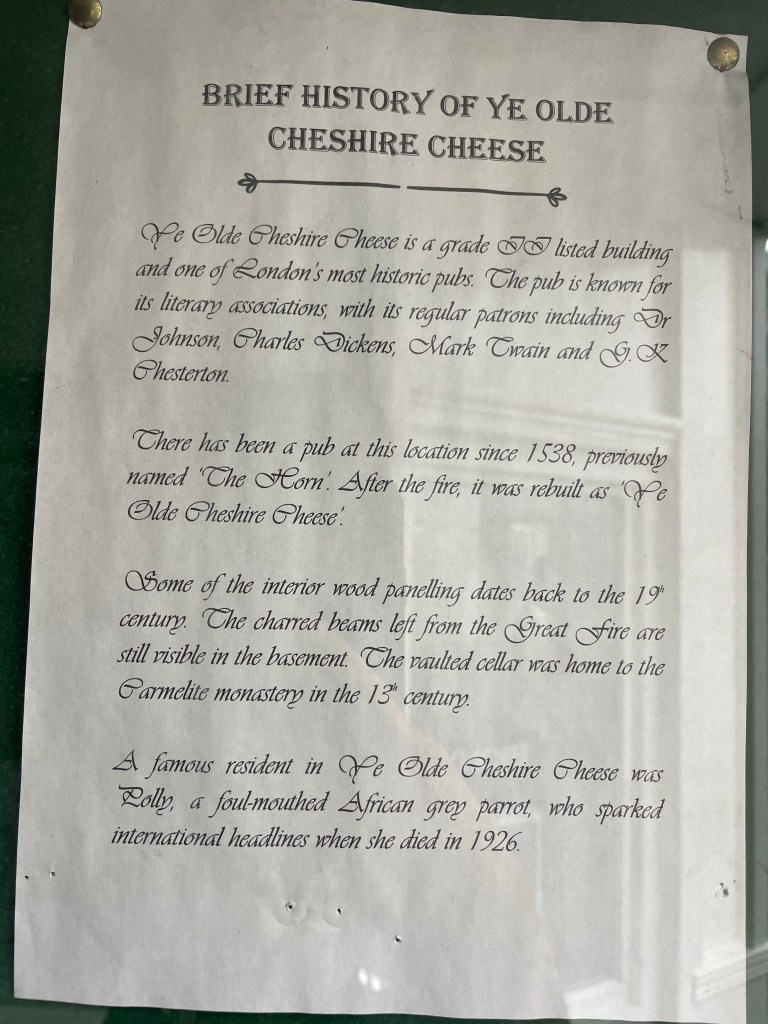 BRIEF HISTORY OF YE OLDE
CHESHIRE CHEESE
Ye Olde Cheshire Cheese is a grade II listed building
and one of London's most historic pubs. The pub is known for
its literary associations, with its regular patrons including Dr
Johnson, Charles Dickens, Mark Twain and G.K
Chesterton.
There has been a pub at this location since 1538, previously
named 'The Horn'. After the fire, it was rebuilt as 'Ye
Olde Cheshire Cheese'.
Some of the interior wood panelling dates back to the 19th
century. The charred beams left from the Great Fire are
still visible in the basement. The vaulted cellar was home to the
Carmelite monastery in the 13th century.
A famous resident in Ye Olde Cheshire Cheese was
Polly, a foul-mouthed African grey parrot, who sparked
international headlines when she died in 1926.